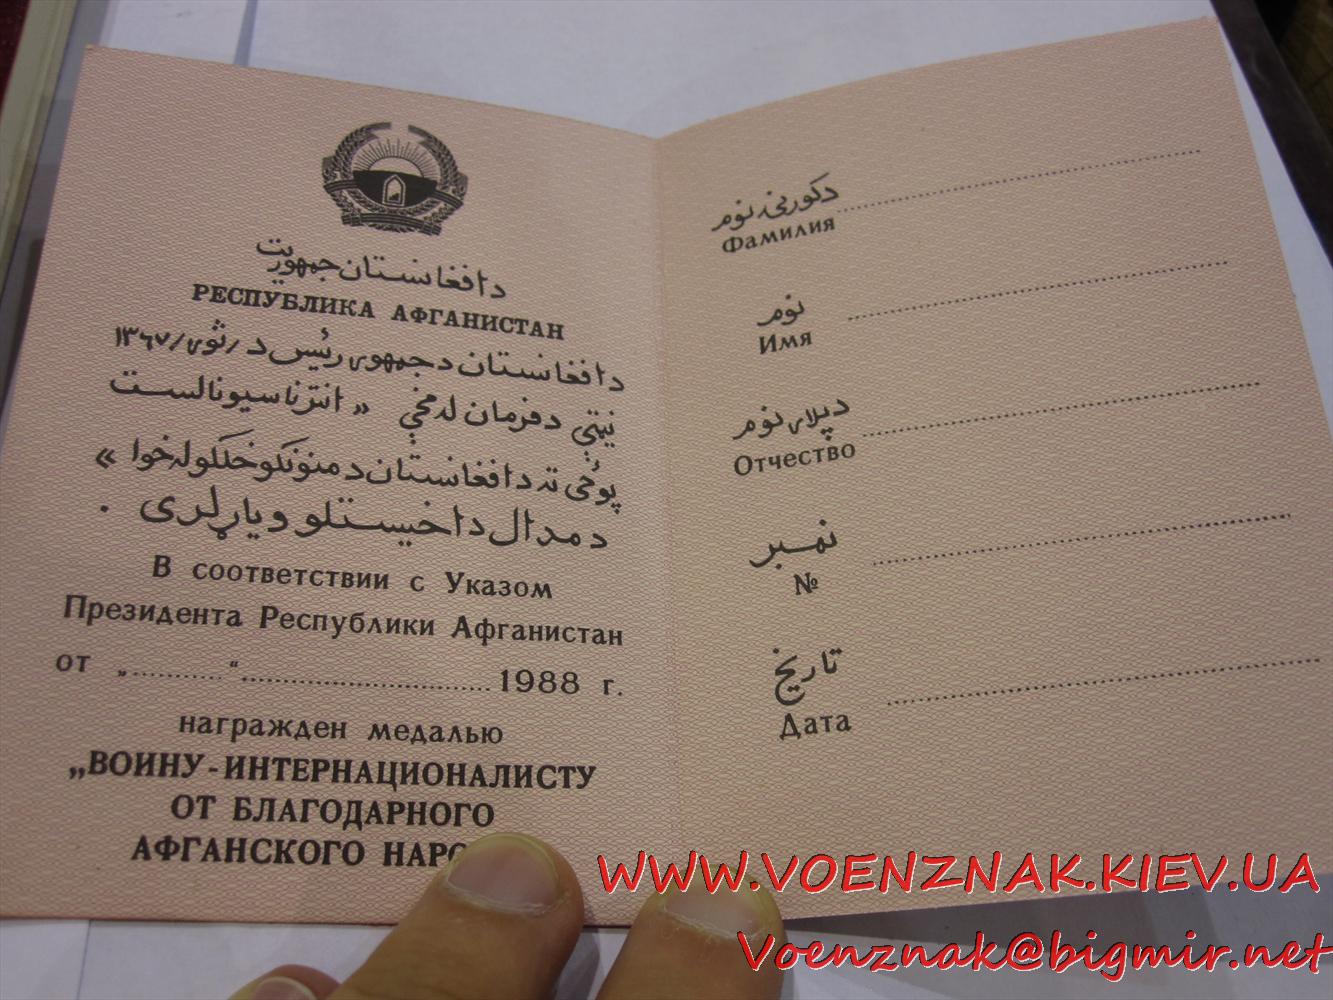 دافغانستان جمهوریت
РЕСПУБЛИКА АФГАНИСТАН
دافغانستان دجمهوری رئیس د /ثوی/ ۱۳٦۷
نیټې دفرمان له مخې « انترناسیونالست
پوځی ته دافغانستان دمنونکو خلکو له خوا »
دمدال داخیستلو ویاړ لری .
В соответствии с Указом
Президента Республики Афганистан
от „..........“............................ 1988 г.
награжден медалью
„ВОИНУ-ИНТЕРНАЦИОНАЛИСТУ
ОТ БЛАГОДАРНОГО
АФГАНСКОГО
دکورنی نوم
Фамилия
نوم
Имя
دپلار نوم
Отчество
نمبر
№
تاریخ
Дата
WWW.VOENZNAK.KIEV.UA
Voenznak@bigmir.net